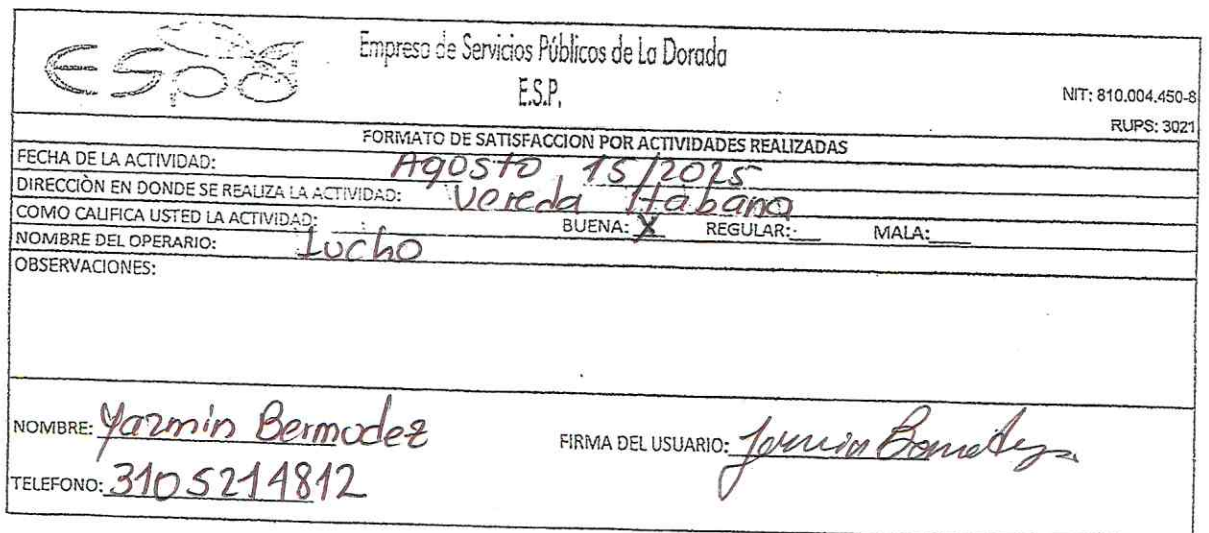 espd
Empresa de Servicios Públicos de La Dorada
E.S.P.
NIT: 810.004.450-8
RUPS: 3021
FORMATO DE SATISFACCION POR ACTIVIDADES REALIZADAS
FECHA DE LA ACTIVIDAD: Agosto 15/2025
DIRECCIÒN EN DONDE SE REALIZA LA ACTIVIDAD: Vereda Habana
COMO CALIFICA USTED LA ACTIVIDAD: BUENA: X REGULAR: MALA:
NOMBRE DEL OPERARIO: Lucho
OBSERVACIONES:
NOMBRE: Yazmin Bermudez FIRMA DEL USUARIO:
TELEFONO: 3105214812